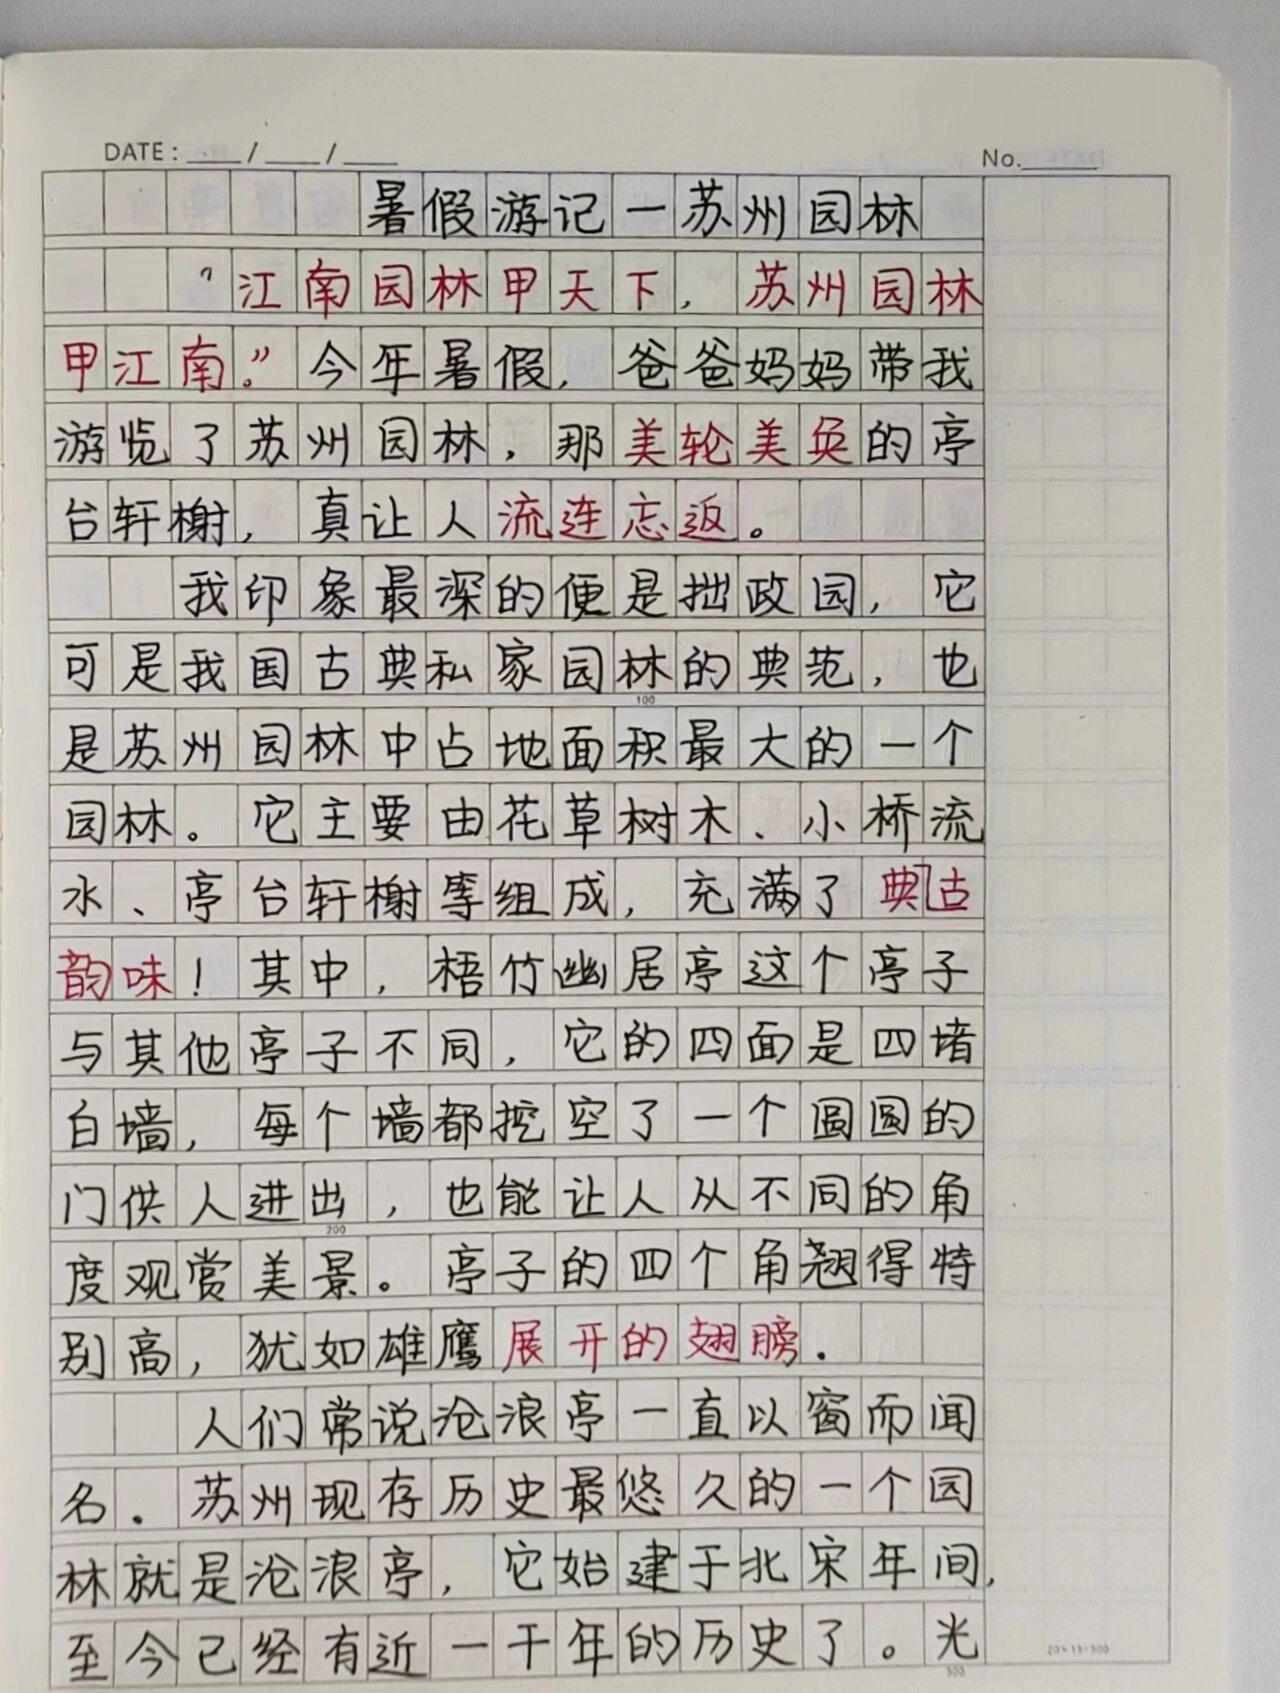 DATE: ___ / ___ / ___
No.______
暑假游记一苏州园林
“江南园林甲天下，苏州园林
甲江南。”今年暑假，爸爸妈妈带我
游览了苏州园林，那美轮美奂的亭
台轩榭，真让人流连忘返。
我印象最深的便是拙政园，它
可是我国古典私家园林的典范，也
100
是苏州园林中占地面积最大的一个
园林。它主要由花草树木、小桥流
水、亭台轩榭等组成，充满了典古
韵味！其中，梧竹幽居亭这个亭子
与其他亭子不同，它的四面是四堵
白墙，每个墙都挖空了一个圆圆的
门供人进出，也能让人从不同的角
200
度观赏美景。亭子的四个角翘得特
别高，犹如雄鹰展开的翅膀.
人们常说沧浪亭一直以窗而闻
名.苏州现存历史最悠久的一个园
林就是沧浪亭，它始建于北宋年间，
至今已经有近一千年的历史了。光
20×15=300
300